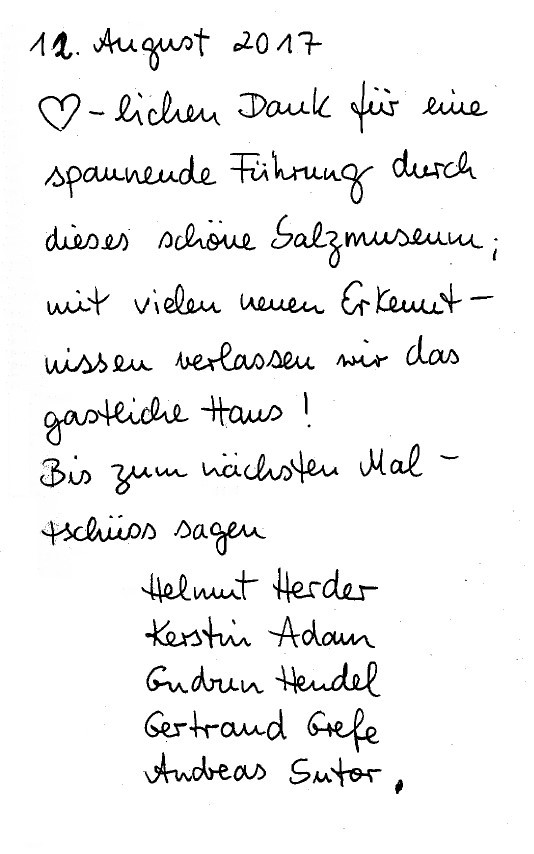 12. August 2017
♡-lichen Dank für eine
spannende Führung durch
dieses schöne Salzmuseum;
mit vielen neuen Erkennt-
nissen verlassen wir das
gastliche Haus!
Bis zum nächsten Mal -
tschüss sagen
Helmut Herder
Kerstin Adam
Gudrun Hendel
Gertraud Grefe
Andreas Sutor.